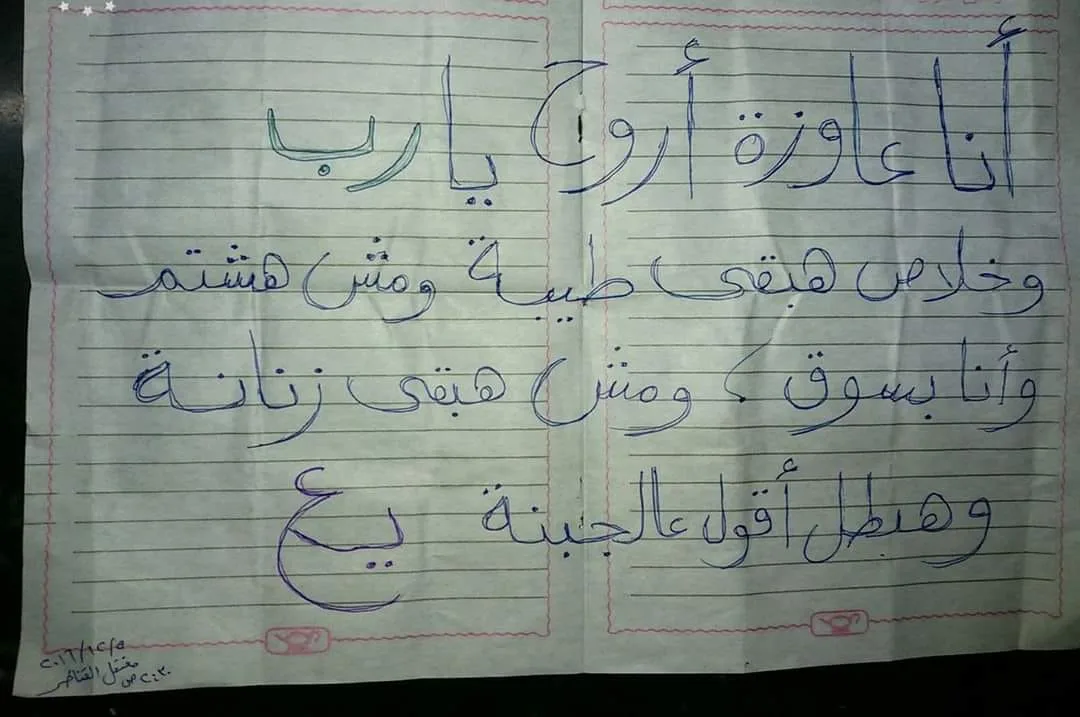 أنا عاوزة أروح يا رب
وخلاص هبقى طيبة ومش هشتم
وأنا بسوق، ومش هبقى زنانة
وهبطل أقول عالجبنة يع
٢٠١٦/١٢/٥
معتقل القناطر
٢:٣٠ ص